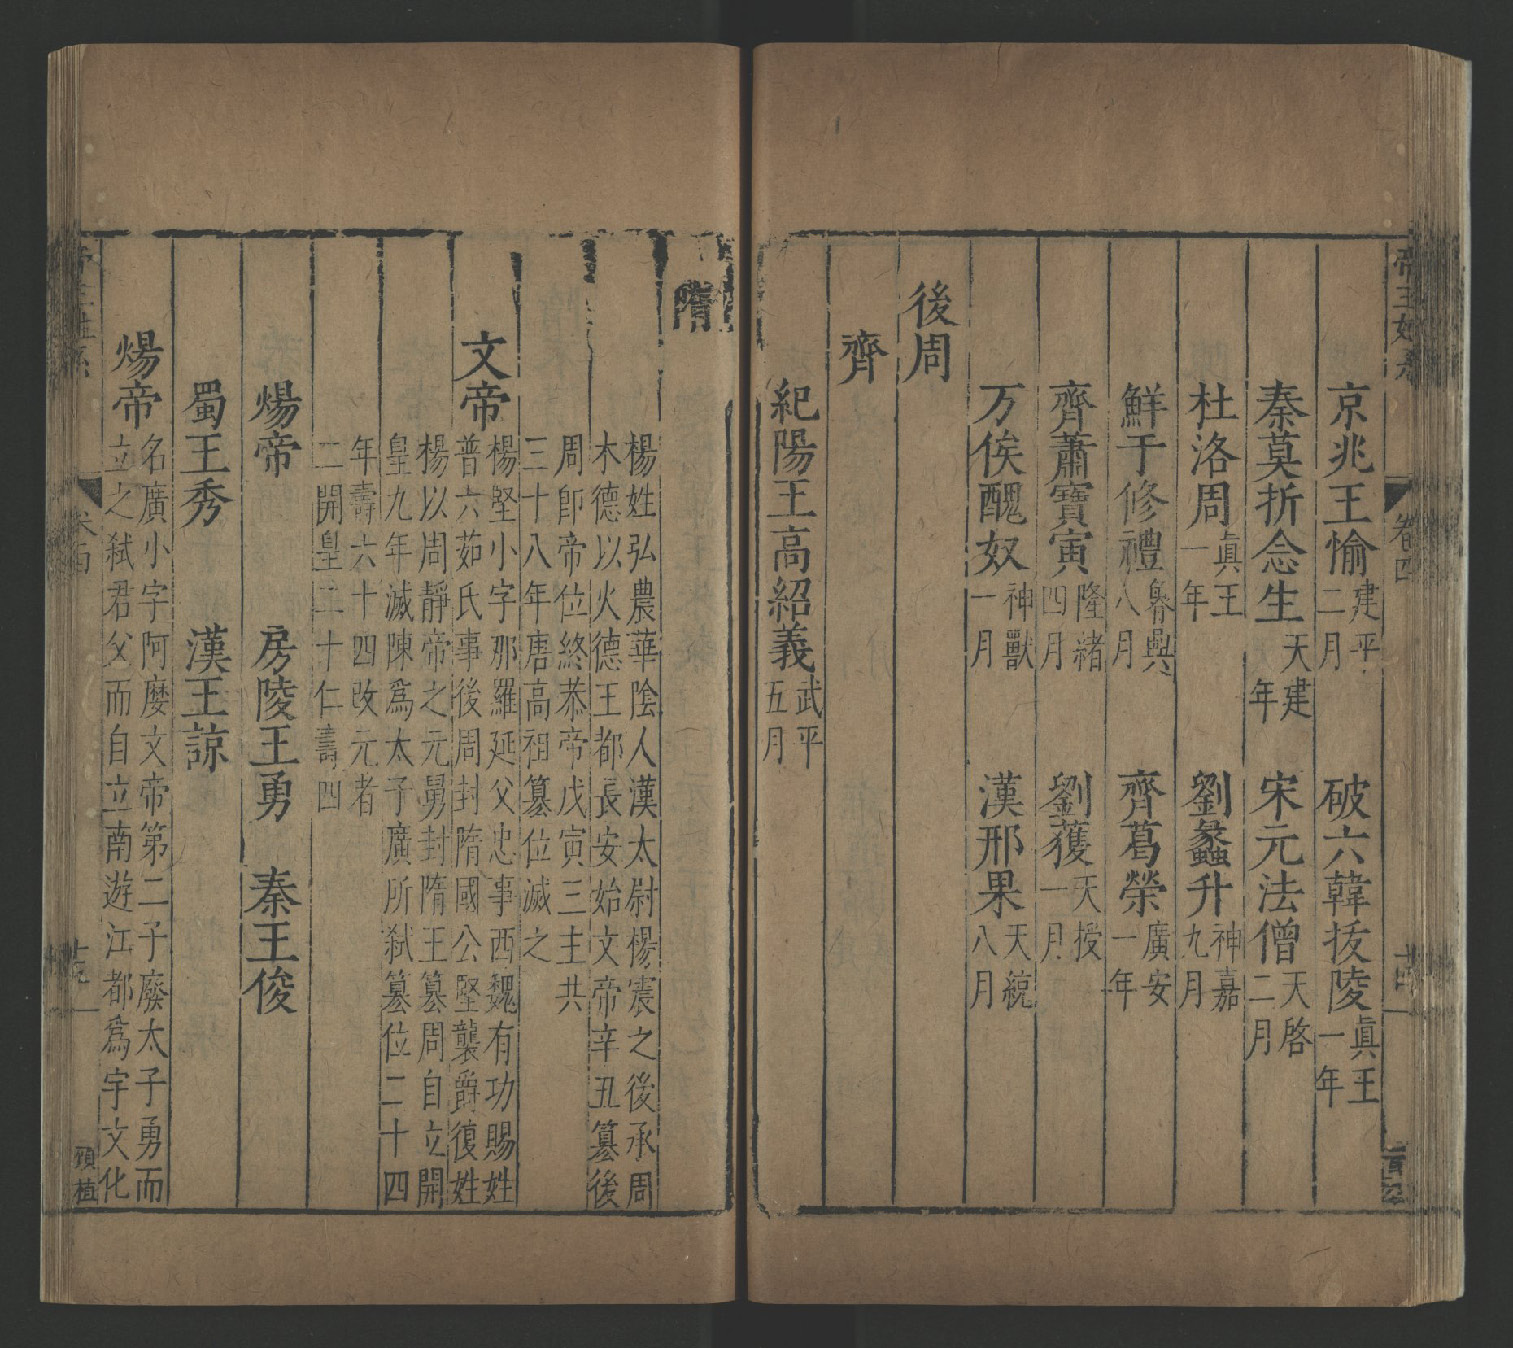 京兆王愉 建平二月 破六韓拔陵 眞王一年
秦莫折念生 天建年 宋元法僧 天啓二月
杜洛周 眞王一年 劉蠡升 神嘉九月
鮮于修禮 魯興八月 齊葛榮 廣安一年
齊蕭寶寅 隆緒四月 劉獲 天授一月
万俟醜奴 神獸一月 漢邢杲 天統八月
後周
齊
紀陽王高紹義 武平五月
隋
楊姓弘農華陰人漢太尉楊震之後承周
木德以火德王都長安始文帝辛丑篡後
周即帝位終恭帝戊寅三主共
三十八年唐高祖篡位滅之
文帝 楊堅小字那羅延父忠事西魏有功賜姓
普六茹氏事後周封隋國公堅襲爵復姓
楊以周靜帝之元舅封隋王篡周自立開
皇九年滅陳爲太子廣所弑篡位二十四
年壽六十四改元者
二開皇二十仁壽四
煬帝 房陵王勇 秦王俊
蜀王秀 漢王諒
煬帝 名廣小字阿麼文帝第二子廢太子勇而
立之弑君父而自立南遊江都爲宇文化
卷四